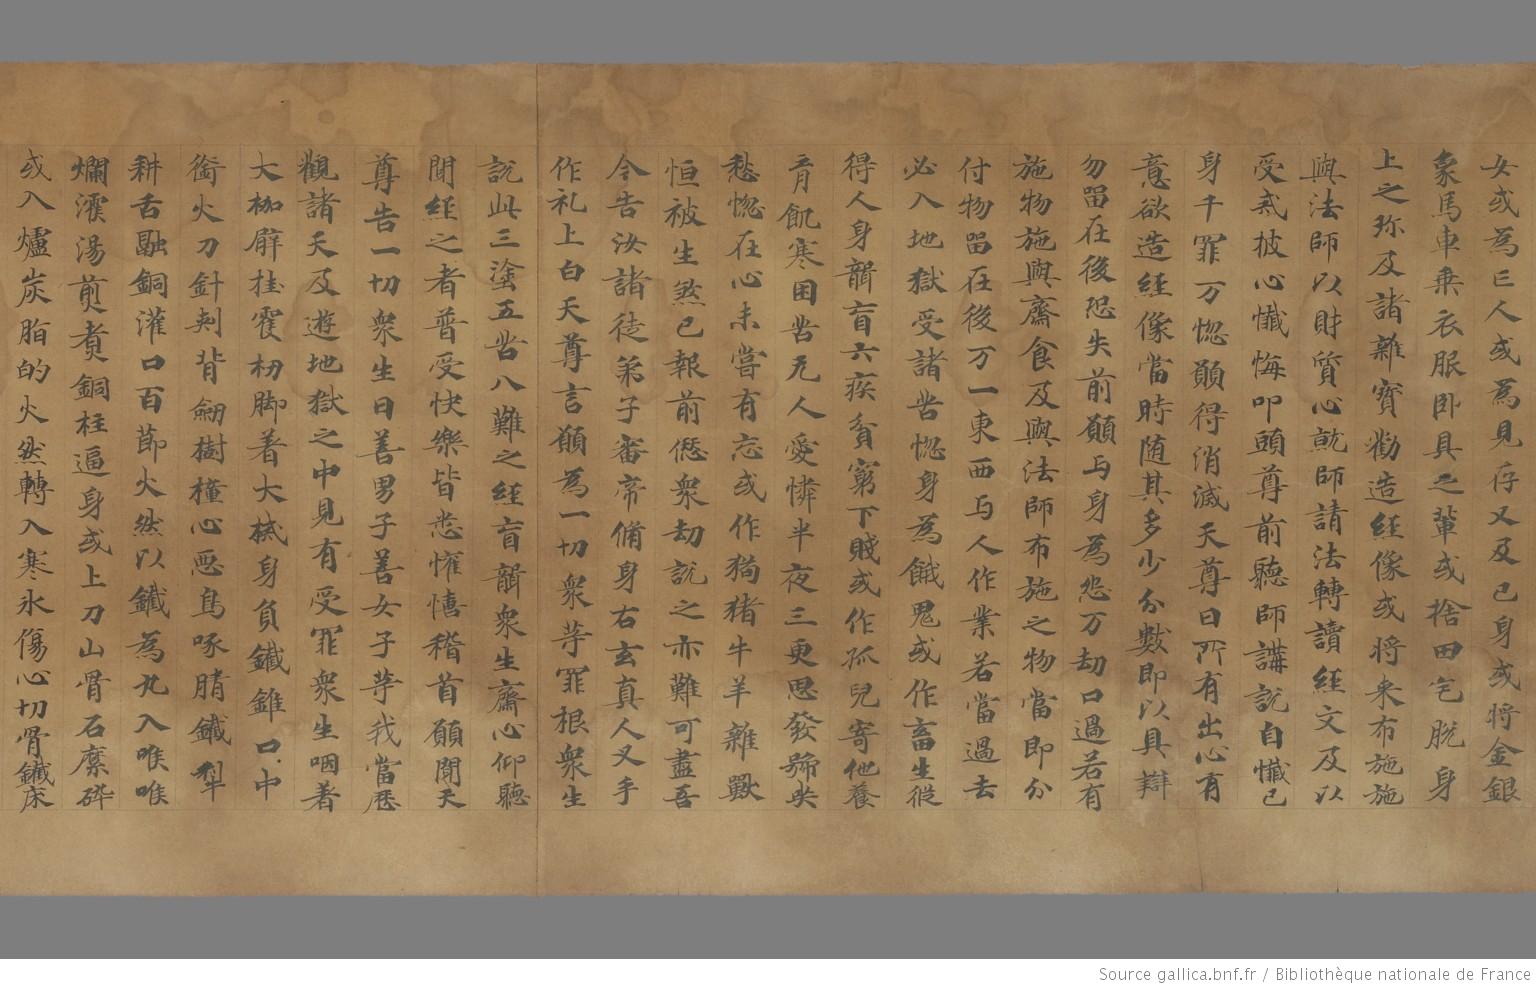 女或為亡人或為見存又及己身或将金銀
象馬車乗衣服卧具之輦或捨田宅脱身
上之珎及諸雜寳勸造経像或将来布施施
與法師以財質心就師請法轉讀経文及以
受戒披心懴悔叩頭尊前聴師講説自懴己
身千罪万惚願得消滅天尊曰所有出心有
意欲造経像當時随其多少分數即以具辯
勿留在後恐失前願与身為怨万劫口過若有
施物施與齋食及與法師布施之物當即分
付物留在後万一東西与人作業若當過去
必入地獄受諸苦惚身為餓鬼或作畜生従
得人身聾盲六疾貧窮下賤或作孤兒寄他養
育飢寒困苦无人愛憐半夜三更思發號哭
愁惚在心未嘗有忘或作猫猪牛羊雜獸
恒被生煞已報前𠎝衆劫説之亦難可盡吾
今告汝諸徒弟子審帝備身右玄真人叉手
作礼上白天尊言願為一切衆等罪根衆生
説此三塗五苦八難之経盲聾衆生齋心仰聴
聞経之者普受快樂皆悉懽憘稽首願聞天
尊告一切衆生曰善男子善女子等我當歴
觀諸天及遊地獄之中見有受罪衆生咽着
大枷臂桂霍杻脚着大械身負鐵錐口中
銜火刀針刾背劒樹橦心悪鳥啄睛鐵犁
耕舌融銅灌口百節火然以鐵為丸入喉喉
爛濩湯煎煮銅柱逼身或上刀山骨石縻碎
或入爐炭脂的火然轉入寒氷傷心切骨鐵床
Source gallica.bnf.fr / Bibliothèque nationale de France